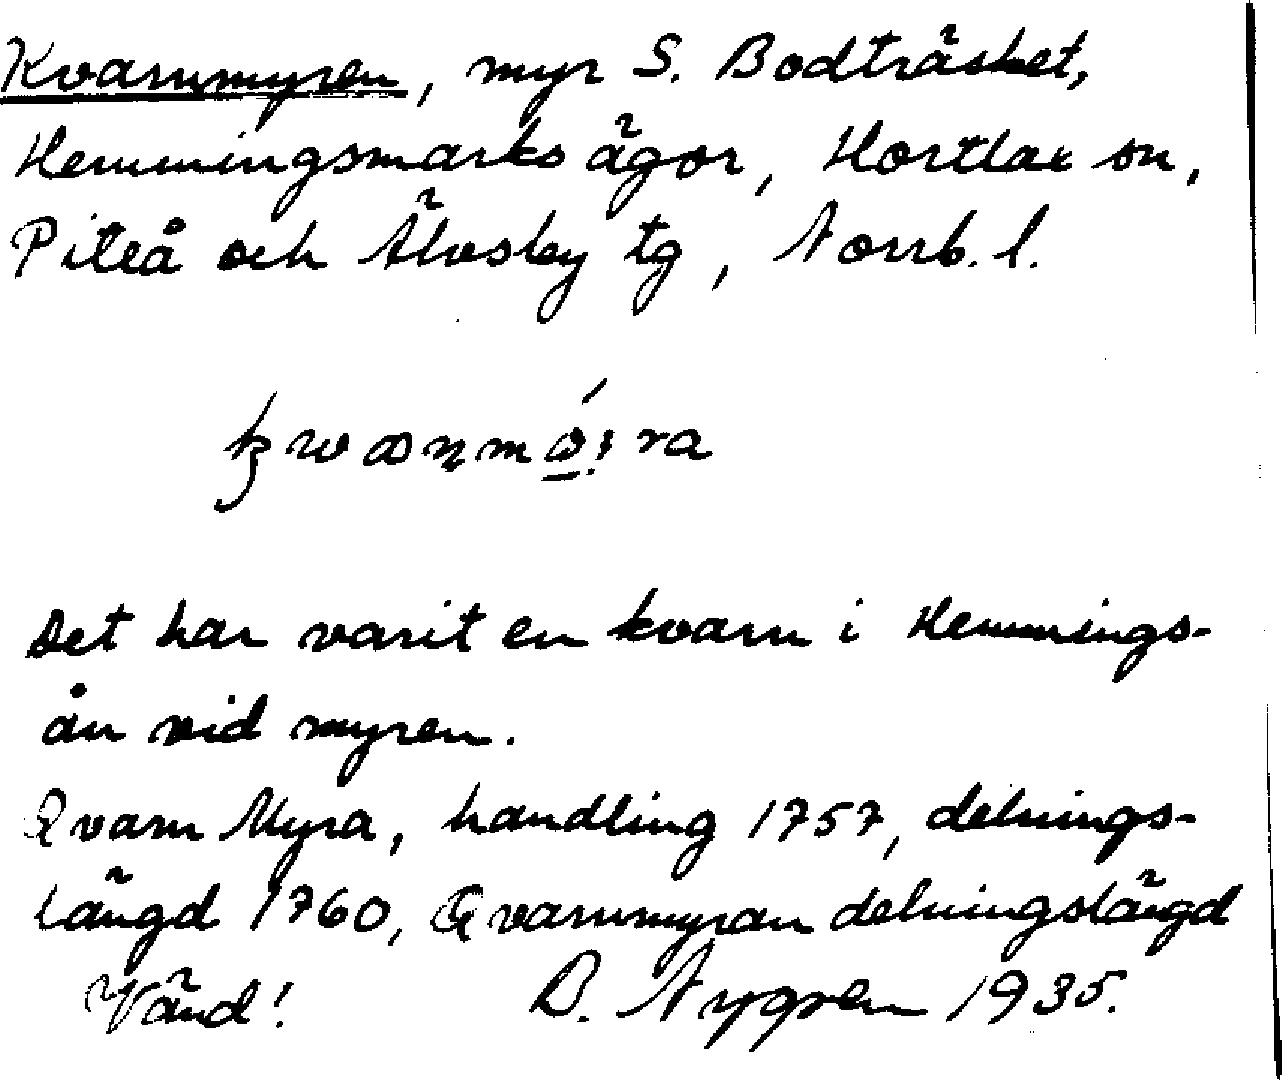 Kvarnmyren, myr S. Bodträsket,
Hemmingsmarks ägor, Hortlax sn,
Piteå och Älvsby tg, Norrb. l.
Det har varit en kvarn i Hemmings-
ån vid myren.
Qvarn Myra, handling 1757, delnings-
längd 1760, Qvarnmyran delningslängd
Vänd! B. Nygren 1935.